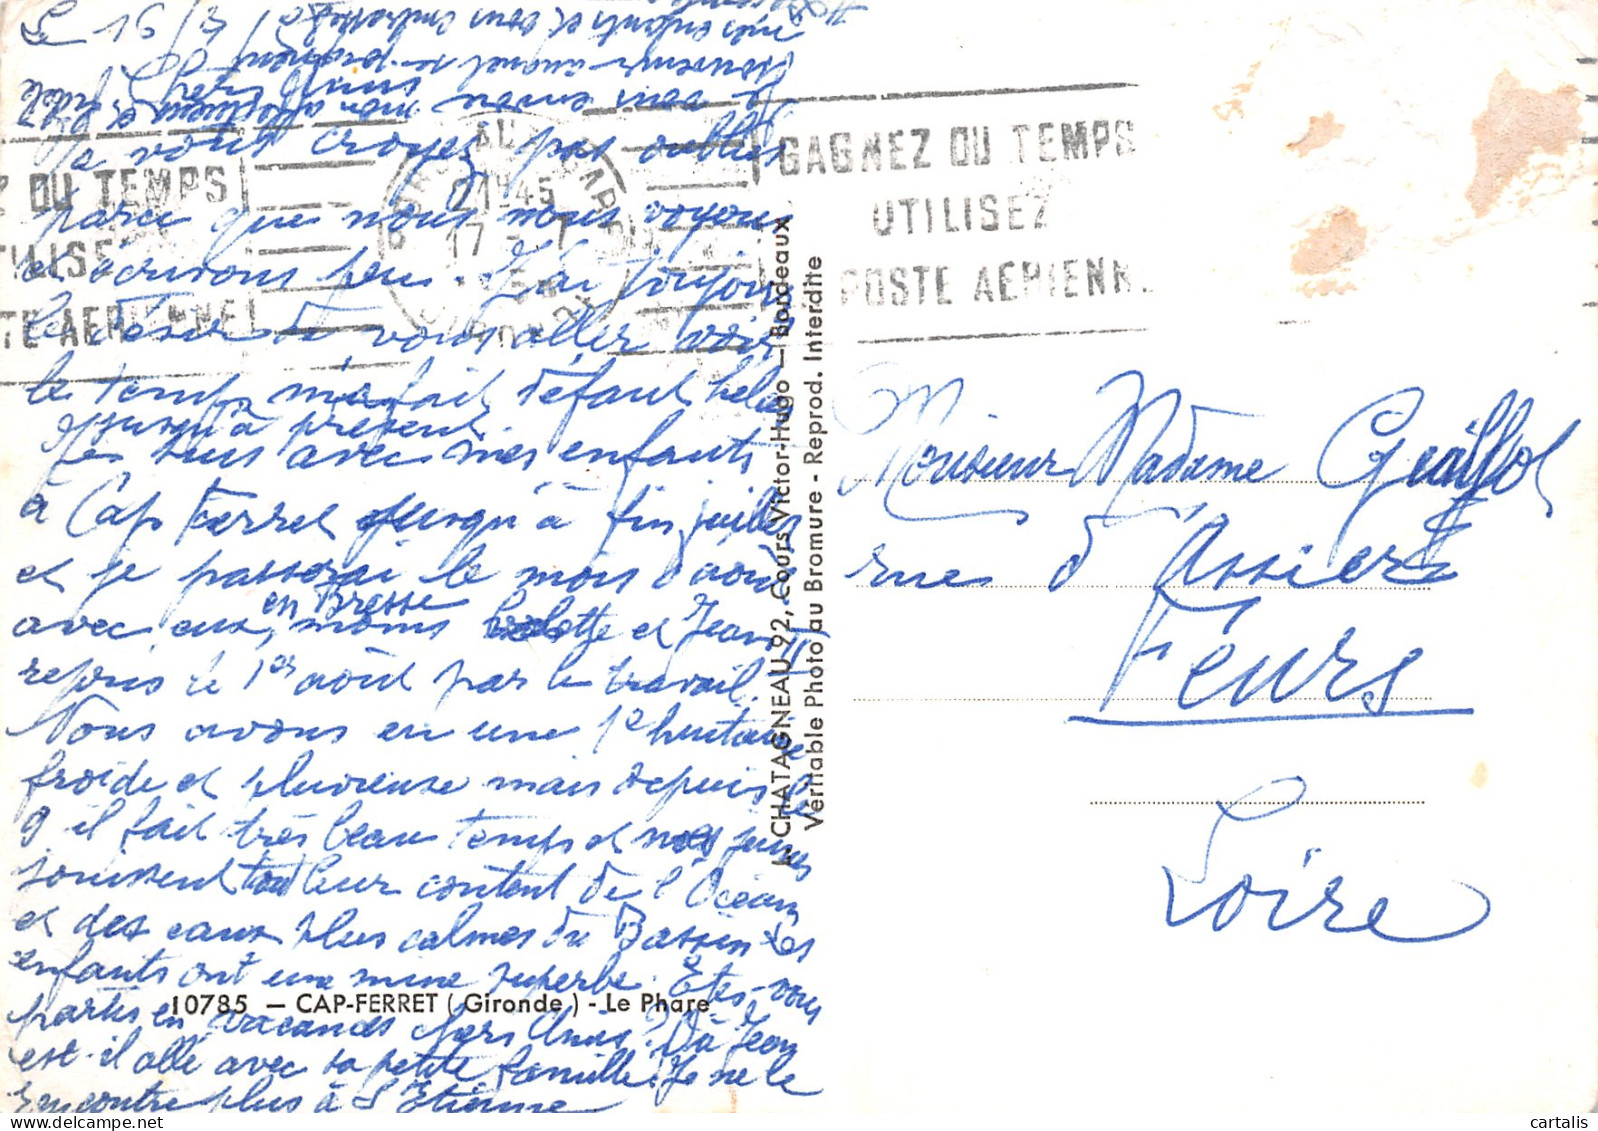 Le 15/7/
Je vous croyez pas oubliés
parce que nous nous voyons
et écrivons peu. J'ai toujours
le désir de vous aller voir
le temps m'a fait défaut hélas
jusqu'à présent
Je suis avec mes enfants
à Cap Ferret jusqu'à fin juillet
et je passerai le mois d'août
en Bresse
avec eux, moins et Jean
repris le 1er août par le travail.
Nous avons eu une 1e huitaine
froide et pluvieuse mais depuis le
9 il fait très beau temps et nos jeunes
jouissent tout leur content de l'Océan
et des eaux plus calmes du Bassin. Les
enfants ont une mine superbe. Êtes-vous
partis en vacances chers Amis? Où Jean
est-il allé avec sa petite famille? Je ne le
rencontre plus à St Etienne
Je vous envoie mon affectueux et fidèle
souvenir auquel se joignent
mes enfants et vous embrasse
10785 — CAP-FERRET (Gironde) - Le Phare
CHATAGNEAU 92, Cours Victor-Hugo — Bordeaux
Véritable Photo au Bromure - Reprod. Interdite
DU TEMPS
TILISE
TE AERIENNE
21H45
17 - 7
GAGNEZ DU TEMPS
UTILISEZ
POSTE AERIENN
Monsieur Madame
rue d'Assier
Feurs
Loire
cartalis.com